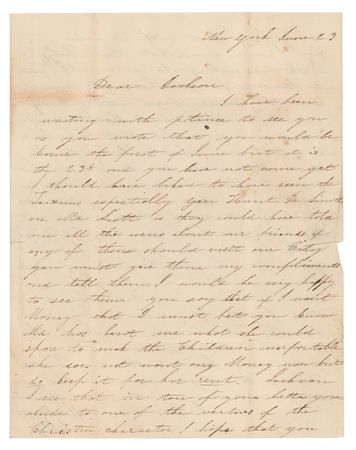 New York June 23
Dear Jackson
I have been
waiting with patence to see you
as you wrote that you would be
home the first of June but it is
the 23th and you have not come yet
I should have liked to have seen the
espectially Gen
or Mr Scott as they could have told
me all the news about our friends if
any of them should visit our City
you must give them my compliments
and tell them I would be very happy
to see them you say that if I want
Money that I must let you know
Ma has lent me what she could
spare to mak the Children comfortable
she does not want any Money now but
to keep it for her rent. Jackson
I see that in ton of your letters you
alude to one of the vertues of the
Christin character I hope that you